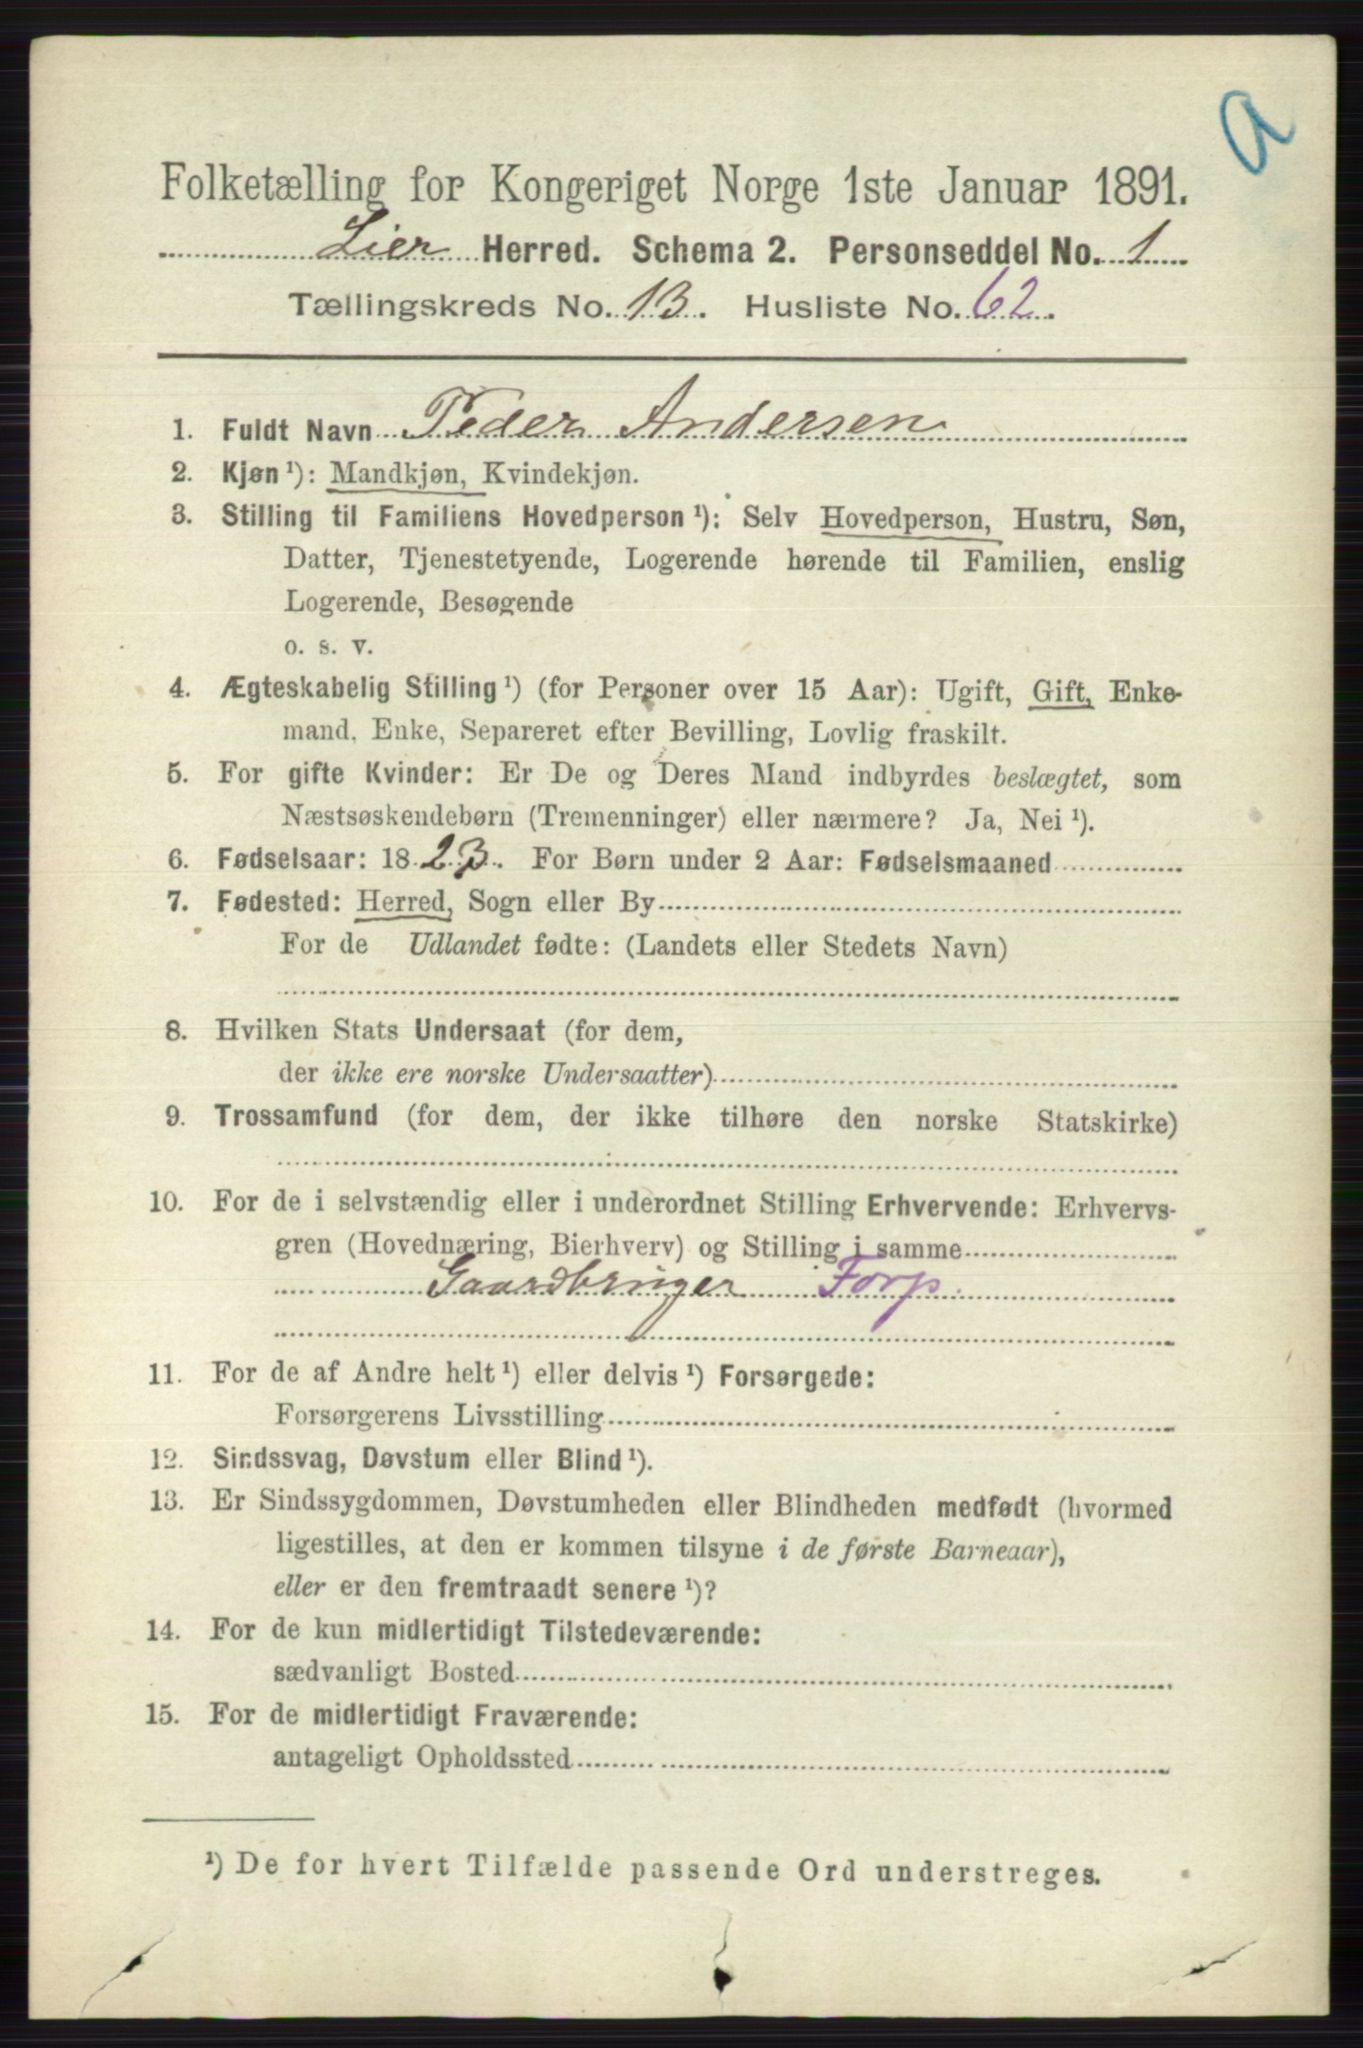 a
Folketælling for Kongeriget Norge 1ste Januar 1891.
Lier Herred. Schema 2. Personseddel No. 1
Tællingskreds No. 13. Husliste No. 62.
1. Fuldt Navn Peder Andersen
2. Kjøn ¹): Mandkjøn, Kvindekjøn.
3. Stilling til Familiens Hovedperson ¹): Selv Hovedperson, Hustru, Søn,
Datter, Tjenestetyende, Logerende hørende til Familien, enslig
Logerende, Besøgende
o. s. v.
4. Ægteskabelig Stilling ¹) (for Personer over 15 Aar): Ugift, Gift, Enke-
mand, Enke, Separeret efter Bevilling, Lovlig fraskilt.
5. For gifte Kvinder: Er De og Deres Mand indbyrdes beslægtet, som
Næstsøskendebørn (Tremenninger) eller nærmere? Ja, Nei ¹).
6. Fødselsaar: 1823. For Børn under 2 Aar: Fødselsmaaned
7. Fødested: Herred, Sogn eller By
For de Udlandet fødte: (Landets eller Stedets Navn)
8. Hvilken Stats Undersaat (for dem,
der ikke ere norske Undersaatter)
9. Trossamfund (for dem, der ikke tilhøre den norske Statskirke)
10. For de i selvstændig eller i underordnet Stilling Erhvervende: Erhvervs-
gren (Hovednæring, Bierhverv) og Stilling i samme
Gaardbruger Forp.
11. For de af Andre helt ¹) eller delvis ¹) Forsørgede:
Forsørgerens Livsstilling
12. Sindssvag, Døvstum eller Blind ¹).
13. Er Sindssygdommen, Døvstumheden eller Blindheden medfødt (hvormed
ligestilles, at den er kommen tilsyne i de første Barneaar),
eller er den fremtraadt senere ¹)?
14. For de kun midlertidigt Tilstedeværende:
sædvanligt Bosted
15. For de midlertidigt Fraværende:
antageligt Opholdssted
¹) De for hvert Tilfælde passende Ord understreges.